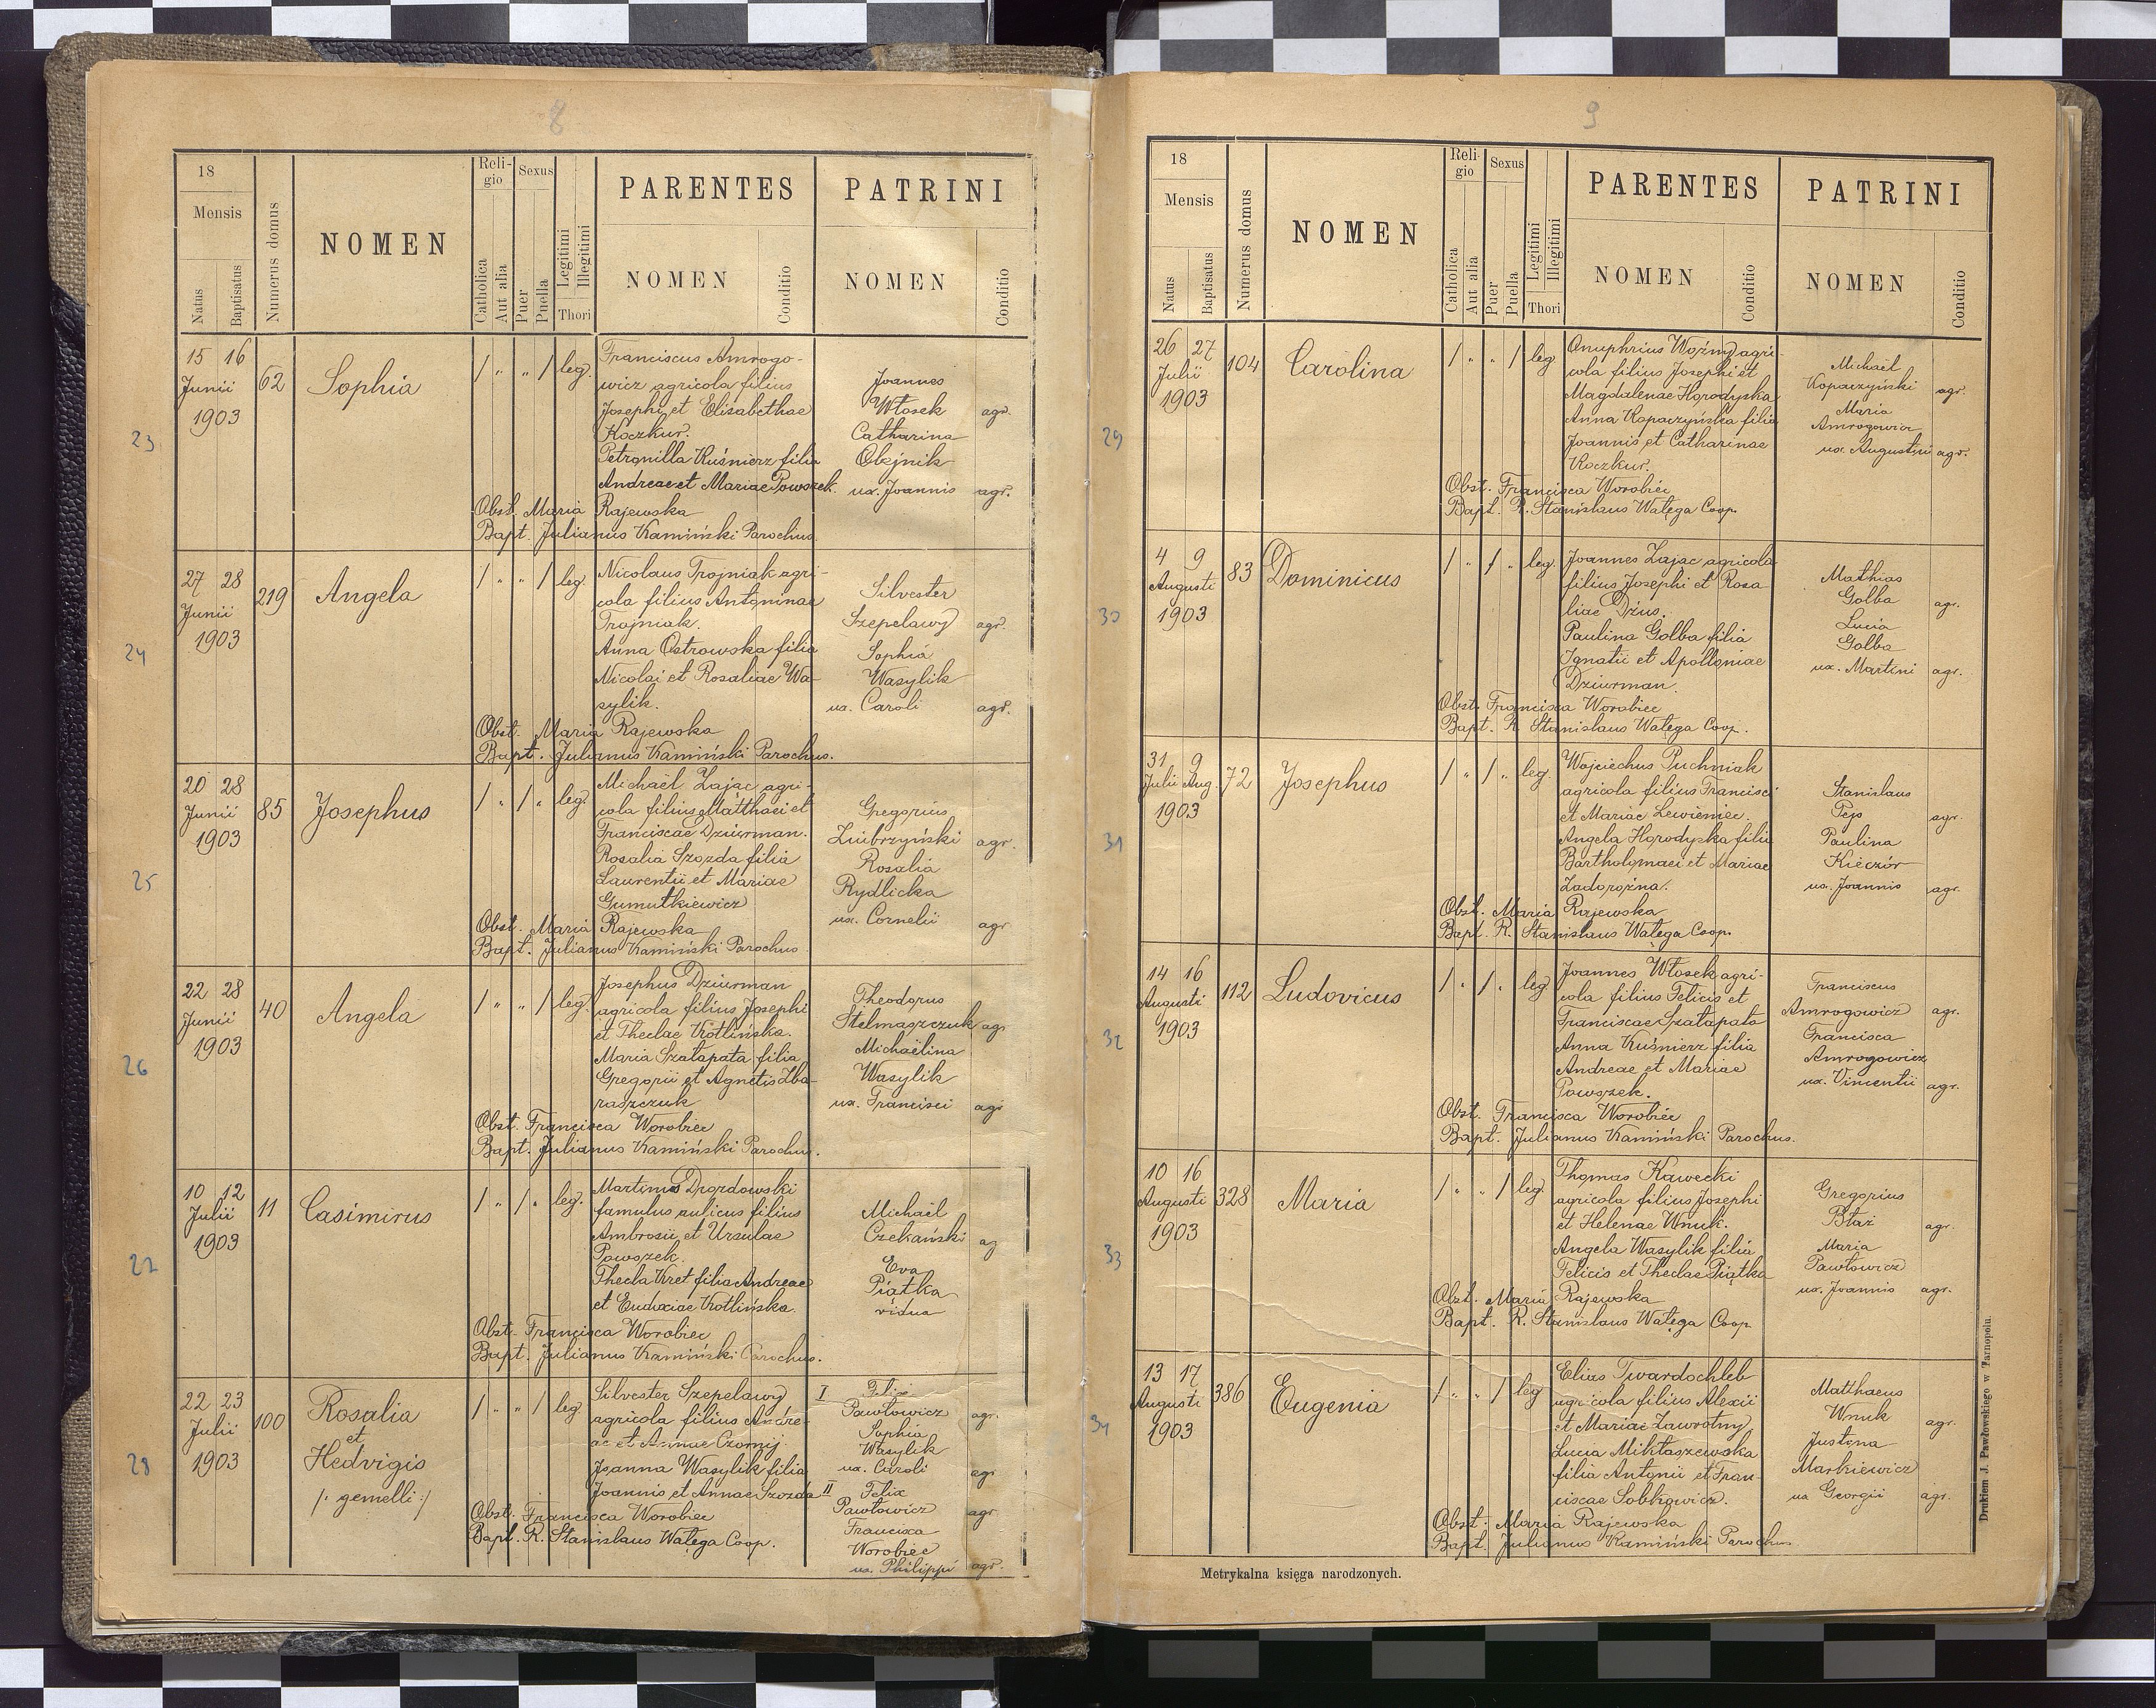 8
18
Mensis
Natus
Baptisatus
Numerus domus
NOMEN
Reli-
gio
Catholica
Aut alia
Sexus
Puer
Puella
Legitimi
Illegitimi
Thori
PARENTES
NOMEN
Conditio
PATRINI
NOMEN
Conditio
23
15 16
Junii
1903
62
Sophia
/ " " / leg.
Franciscus Amrogo-
wicz agricola filius
Josephi et Elisabethae
Koczkur.
Petronilla Kuśnierz filia
Andreae et Mariae Powszek.
Joannes
Włosek agr.
Catharina
Olejnik
ux. Joannis agr.
Obst. Maria Rajewska
Bapt. Julianus Kamiński Parochus.
24
27 28
Junii
1903
219
Angela
/ " " / leg.
Nicolaus Trojniak agri-
cola filius Antoninae
Trojniak.
Anna Ostrowska filia
Nicolai et Rosaliae Wa-
sylik.
Silvester
Szepelawy agr.
Sophia
Wasylik
ux. Caroli agr.
Obst. Maria Rajewska
Bapt. Julianus Kamiński Parochus.
25
20 28
Junii
1903
85
Josephus
/ " / " leg.
Michaël Zając agri-
cola filius Matthaei et
Franciscae Dziurman.
Rosalia Szozda filia
Laurentii et Mariae
Gumutkiewicz
Gregorius
Zuibrzyński agr.
Rosalia
Rydlicka
ux. Cornelii agr
Obst. Maria Rajewska
Bapt. Julianus Kamiński Parochus
26
22 28
Junii
1903
40
Angela
/ " " / leg.
Josephus Dziurman
agricola filius Josephi
et Theclae Kotlińska.
Maria Szatapata filia
Gregorii et Agnetis Zba-
raszczuk
Theodorus
Stelmaszczuk agr
Michaëlina
Wasylik
ux. Francisci agr
Obst. Francisca Worobiec
Bapt. Julianus Kamiński Parochus.
27
10 12
Julii
1903
11
Casimirus
/ " / " leg.
Martinus Drozdowski
famulus aulicus filius
Ambrosii et Ursulae
Powszek.
Thecla Kret filia Andreae
et Eudoxiae Kotlińska.
Michaël
Czekański ag
Eva
Piątka
vidua
Obst. Francisca Worobiec
Bapt. Julianus Kamiński Parochus.
28
22 23
Julii
1903
100
Rosalia
et
Hedvigis
/: gemelli :/
/ " " / leg.
Silvester Szepelawy
agricola filius Andre-
ae et Annae Czornij.
Joanna Wasylik filia
Joannis et Annae Szozda
I Felix
Pawłowicz agr.
Sophia
Wasylik
ux. Caroli agr
II Felix
Pawłowicz agr
Francisca
Worobiec
ux. Philippi agr.
Obst. Francisca Worobiec
Bapt. R. Stanislaus Watęga Coop.
9
18
Mensis
Natus
Baptisatus
Numerus domus
NOMEN
Reli-
gio
Catholica
Aut alia
Sexus
Puer
Puella
Legitimi
Illegitimi
Thori
PARENTES
NOMEN
Conditio
PATRINI
NOMEN
Conditio
29
26 27
Julii
1903
104
Carolina
/ " " / leg
Onuphrius Woźny agri-
cola filius Josephi et
Magdalenae Horodyska
Anna Kopaczyńska filia
Joannis et Catharinae
Koczkur.
Michaël
Kopaczyński agr.
Maria
Amrogowicz
ux. Augustini agr.
Obst. Francisca Worobiec
Bapt. R. Stanislaus Watęga Coop.
30
4 9
Augusti
1903
83
Dominicus
/ " / " leg.
Joannes Zając agricola
filius Josephi et Rosa-
liae Dżus.
Paulina Golba filia
Ignatii et Apolloniae
Dziurman.
Mathias
Golba agr.
Lucia
Golba
ux. Martini agr.
Obst. Francisca Worobiec
Bapt. R. Stanislaus Watęga Coop.
31
31 9
Julii Aug.
1903
72
Josephus
/ " / " leg.
Wojciechus Puchniak
agricola filius Francisci
et Mariae Lewieniec.
Angela Horodyska filia
Bartholomaei et Mariae
Zadorożna.
Stanislaus
Pejs agr.
Paulina
Kieczór
ux. Joannis agr.
Obst. Maria Rajewska
Bapt. R. Stanislaus Watęga Coop.
32
14 16
Augusti
1903
112
Ludovicus
/ " / " leg
Joannes Włosek agri-
cola filius Felicis et
Franciscae Szatapata
Anna Kuśnierz filia
Andreae et Mariae
Powszek.
Franciscus
Amrogowicz agr.
Francisca
Amrogowicz
ux. Vincentii agr.
Obst. Francisca Worobiec
Bapt. Julianus Kamiński Parochus.
33
10 16
Augusti
1903
328
Maria
/ " " / leg.
Thomas Kawecki
agricola filius Josephi
et Helenae Wnuk.
Angela Wasylik filia
Felicis et Theclae Piątka
Gregorius
Błaż agr.
Maria
Pawłowicz
ux. Joannis agr.
Obst. Maria Rajewska
Bapt. R. Stanislaus Watęga Coop
34
13 17
Augusti
1903
386
Eugenia
/ " " / leg
Elias Twardochleb
agricola filius Alexii
et Mariae Zawrotny
Lucia Mikłaszewska
filia Antonii et Fran-
ciscae Sobkowicz.
Matthaeus
Wnuk agr.
Justina
Markiewicz
ux Georgii agr.
Obst. Maria Rajewska
Bapt. Julianus Kamiński Parochus
Metrykalna księga narodzonych.
Drukiem J. Pawłowskiego w Tarnopolu.